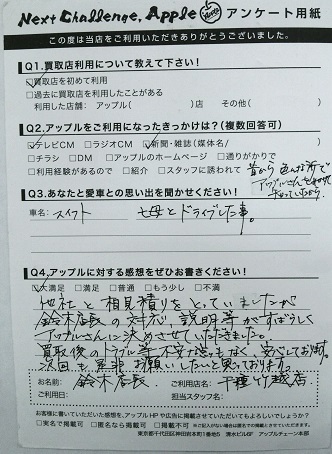 Next Challenge, Apple アンケート用紙
この度は当店をご利用いただきありがとうございました。
Q1.買取店利用について教えて下さい!
□買取店を初めて利用
□過去に買取店を利用したことがある
利用した店舗: アップル( )店 その他( )
Q2.アップルをご利用になったきっかけは?(複数回答可)
□テレビCM □ラジオCM □新聞・雑誌(媒体名/ )
□チラシ □DM □アップルのホームページ □通りがかりで
□利用経験があるので □紹介 □スタッフに誘われて
昔から色んな所で
アップルさんを
知っていたから
Q3.あなたと愛車との思い出を聞かせください!
車名: スイフト
母とドライブした事。
Q4.アップルに対する感想をぜひお書きください!
□大満足 □満足 □普通 □もう少し □不満
他社と相見積りをとっていましたが
鈴木店長の対応、説明等がすばらしく
アップルさんに決めさせていただきました。
買取後のトラブル等不安もなく、安心しております。
次回も是非お願いしたいと思っております。
お名前: 鈴木店長 ご利用店名: 千種竹越店
ご利用日: 担当スタッフ名:
お客様に書いていただいた感想を、アップルHPや広告に掲載させていただいてもよろしいでしょうか?
□実名で掲載可 □匿名なら掲載可 □掲載不可
東京都千代田区神田岩本町1番地5 清水ビル6F アップルチェーン本部